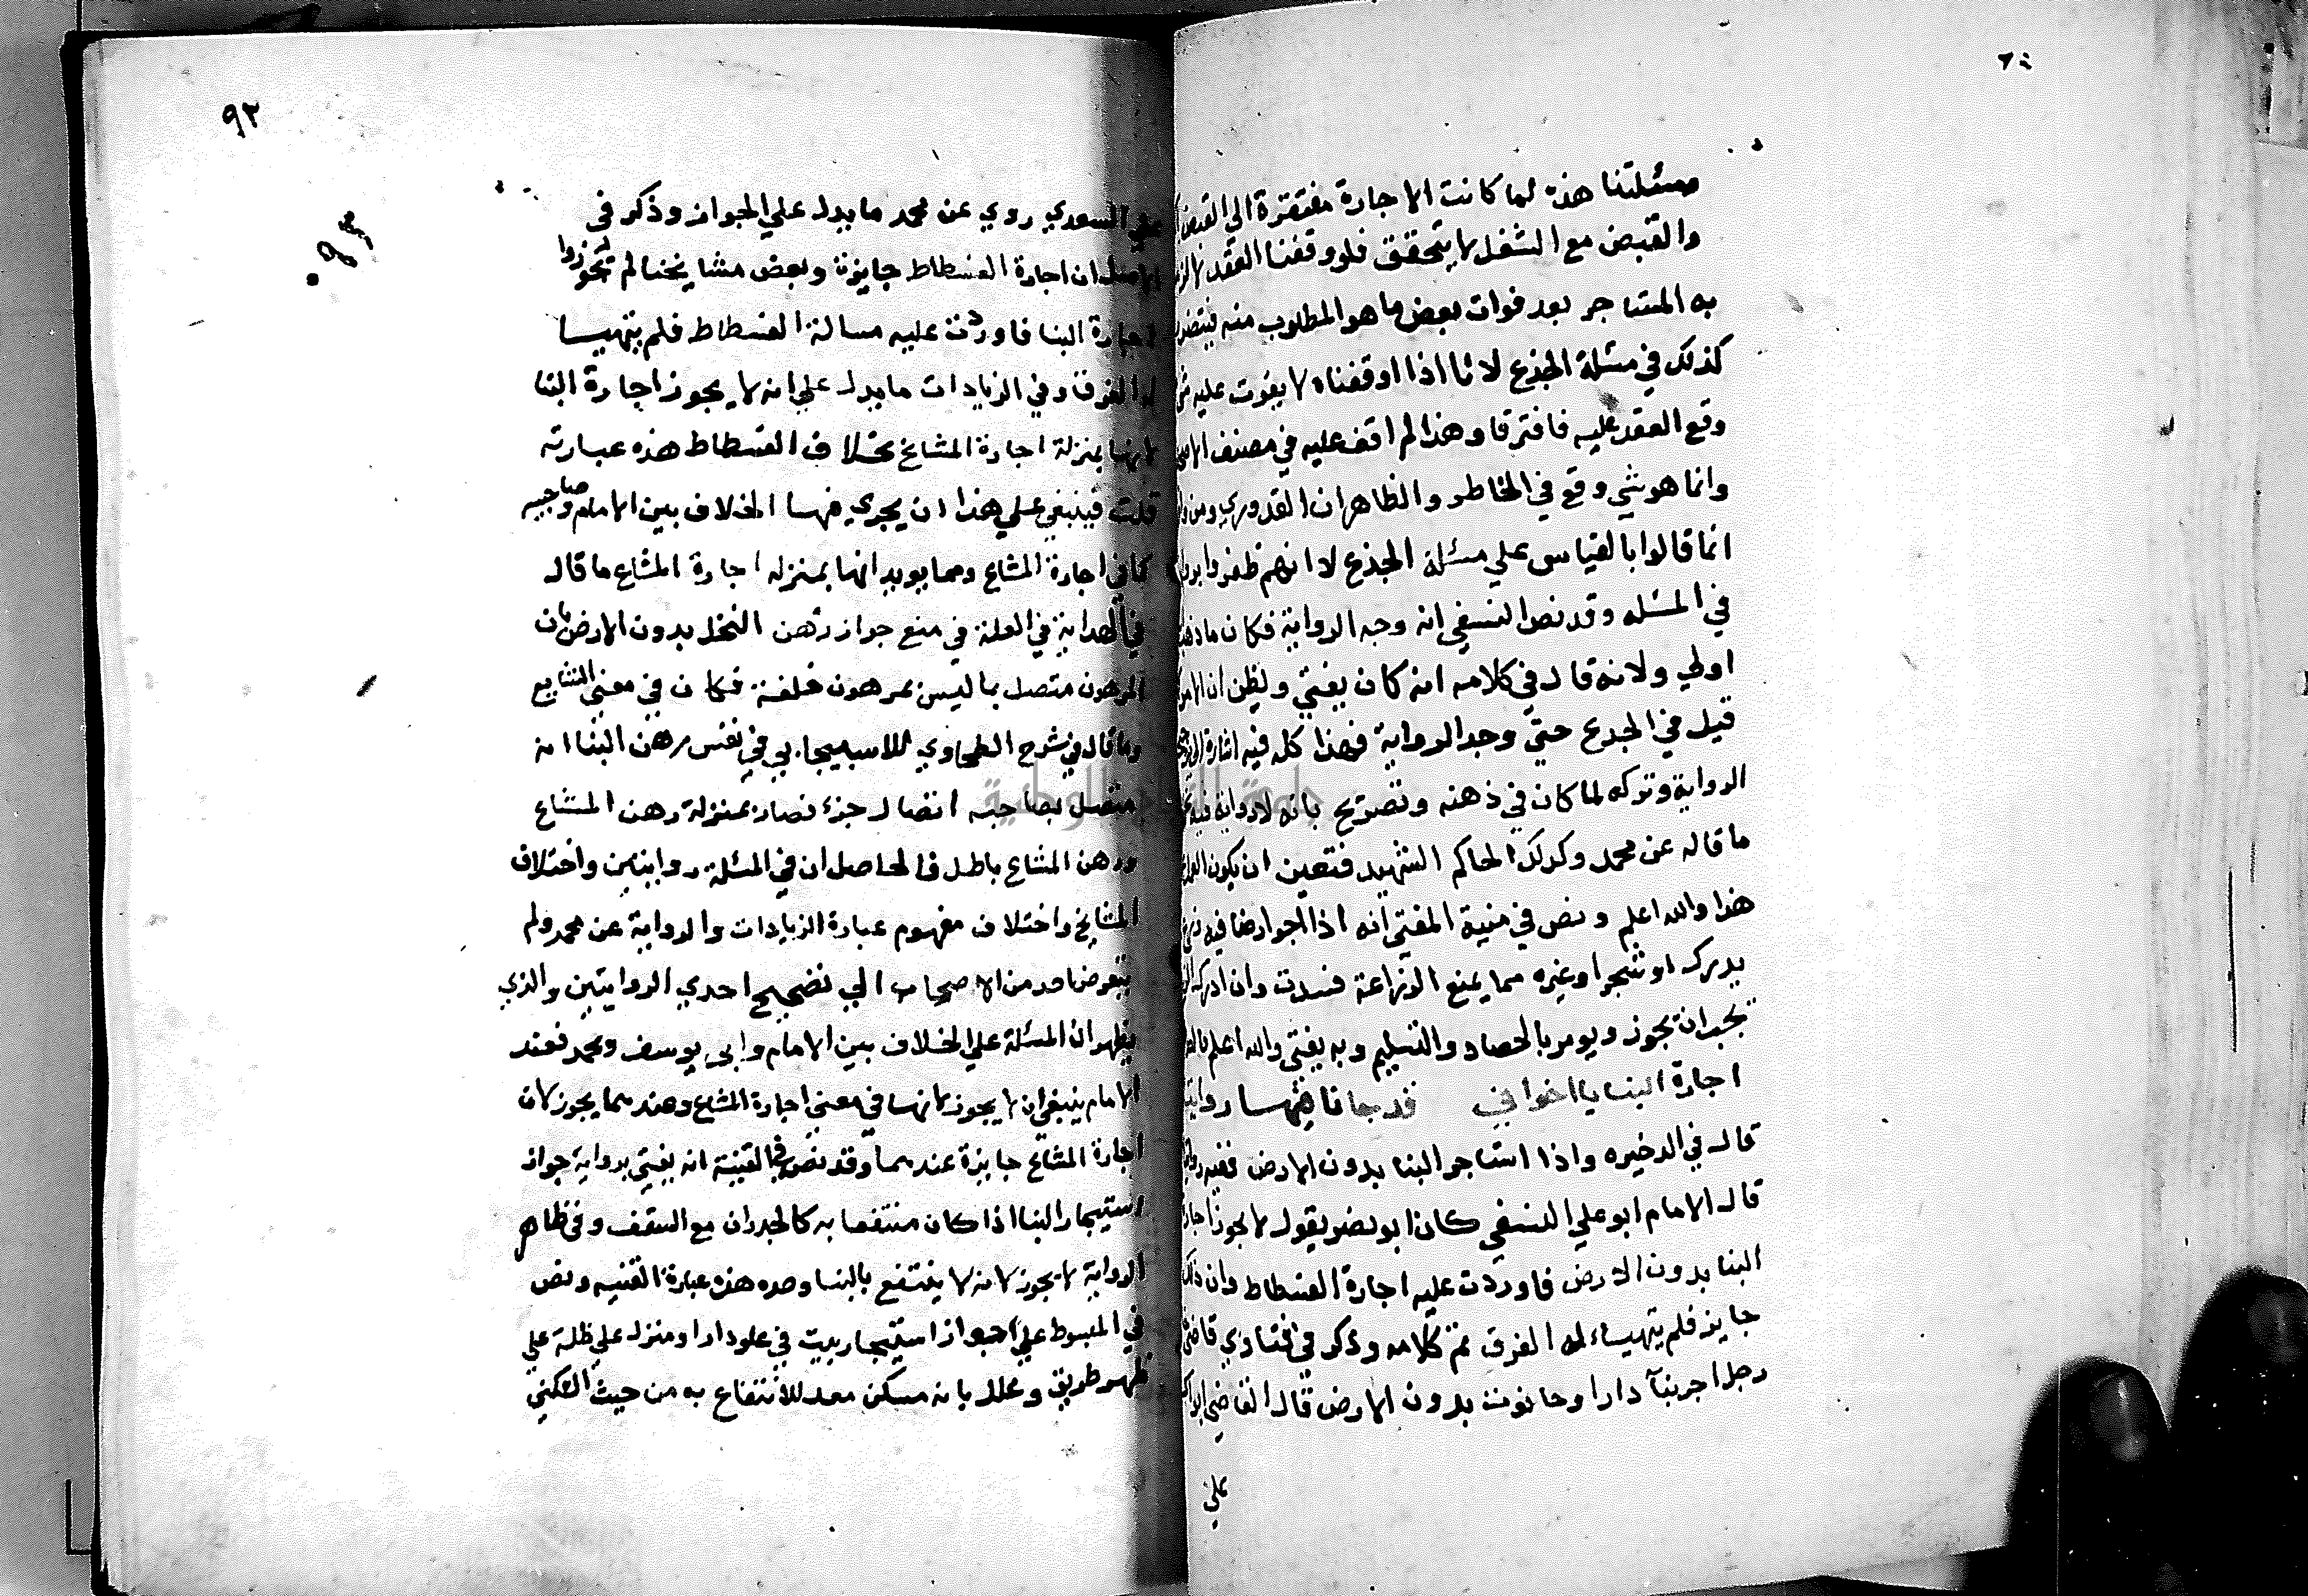 ومسئلتنا هذه لما كانت الاجارة مفتقرة الي القبض
والقبض مع الشغل لا يتحقق فلو وقفنا العقد لا
به المستاجر بعد فوات بعض ما هو المطلوب منه فيتضرر
كذلك في مسئلة الجذع لانا اذا اوقفناه لا يفوت عليه
وقع العقد عليه فافترقا وهذا لم اقف عليه في مصنف
وانما هو شي وقع في الخاطر والظاهر ان القدوري ومن
انما قالوا بالقياس علي مسئلة الجذع لا انهم ظفروا
في المسئله وقد نص النسفي انه وجد الرواية فكان ما
اولي ولانه قال في كلامه انه كان يفتي ويظن ان
قيل في الجدع حتي وجد الرواية فهذا كله فيه اشارة
الرواية وتركه لما كان في ذهنه وتصريح بانه لا رواية فيه
ما قاله عن محمد وكذلك الحاكم الشهيد فتعين ان يكون
هذا والله اعلم ونص في منية المفتي انه اذا اجر ارضا فيه
يدرك او شجرا وغيره مما يمنع الزراعة فسدت وان ادرك
يجب ان يجوز ويومر بالحصاد والتسليم وبه يفتي والله اعلم
اجارة البنا يا اخوا في قد جانا فيهسا
قال في الدخيره واذا استاجر البنا بدون الارض ففيه
قال الامام ابو علي النسفي كان ابو نصر يقول لا يجوز
البنا بدون الارض فاوردت عليه اجارة الفسطاط وان
جايز فلم يتهيساء له الفرق تم كلامه وذكر في فتاوي
رجل اجر بنآ دارا وحانوت بدون الارض قال القاضي
علي
٩٢
علي السعدي روي عن محمد ما يدل علي الجواز وذكر في
الاصل ان اجارة الفسطاط جايزة وبعض مشايخنا لم يجوزوا
اجارة البنا فاوردت عليه مسالة الفسطاط فلم يتهيسا
له الفرق وفي الزيادات ما يدل علي انه لا يجوز اجارة البنا
لانها بمنزلة اجارة المشاع بخلاف الفسطاط هذه عبارته
قلت فينبغي علي هذا ان يجري فيهسا الخلاف بين الامام وصاحبيه
كما في اجارة المشاع ومما يويد انها بمنزله اجارة المشاع ما قال
في الهداية في العلة في منع جواز رهن النخل بدون الارض بان
المرهون متصل بما ليس بمرهون خلفة فكان في معني الشايع
وما قال في شرح الطحاوي للاسبيجابي في نفس رهن البنا انه
متصل بصاحبه اتصال جزء فصار بمنزلة رهن المشاع
ورهن المشاع باطل فالحاصل ان في المسئلة روايتين واختلاف
المشايخ واختلاف مفهوم عبارة الزيادات والرواية عن محمد ولم
يتعرض احد من الاصحاب الي تصحيح احدي الروايتين والذي
يظهر ان المسئلة علي الخلاف بين الامام وابي يوسف ومحمد فعند
الامام ينبغي ان لا يجوز لانهسا في معني اجارة المشاع وعندهما يجوز لان
اجارة المشاع جايزة عندهما وقد نص في القنية انه يفتي برواية جواز
استيجار البنا اذا كان منتفعا به كالجدران مع السقف وفي ظاهر
الرواية لا يجوز لانه لا ينتفع بالبنسا وحده هذه عبارة القنيه ونص
في المبسوط علي جواز استيجار بيت في علو دار او منزل علي ظلة علي
ظهر طريق وعلل بانه مسكن معد للانتفاع به من حيث السكني